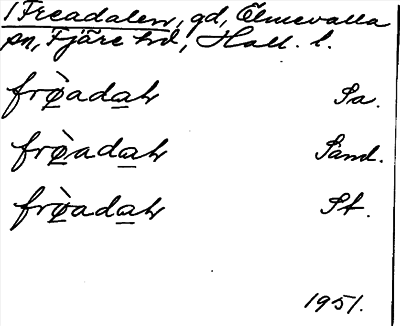 1 Freadalen, gd, Ölmevalla
sn, Fjäre hd, Hall. l.
frø̀adaɫ Sa.
frø̀adaɫ Sand.
frø̀adaɫ St.
1951.